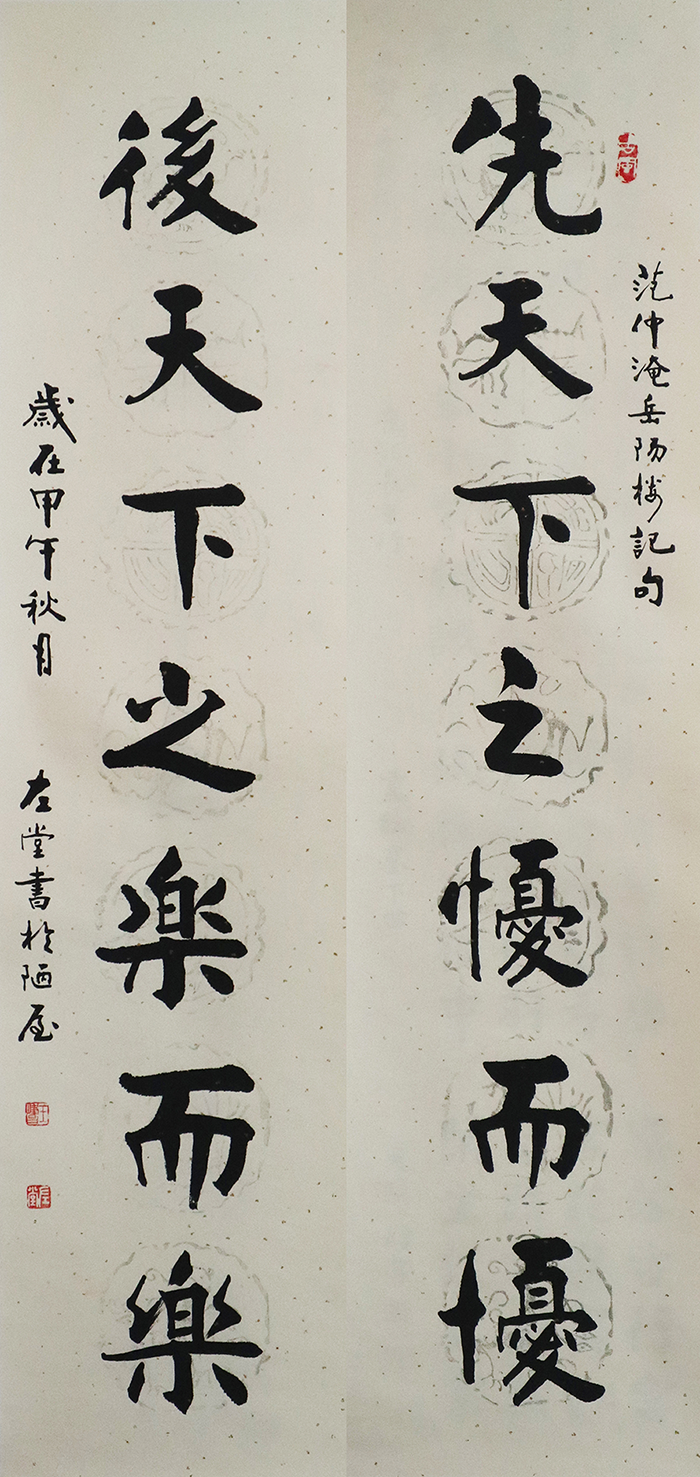 范仲淹岳陽楼記句
先天下之懮而懮
後天下之樂而樂
歲在甲午秋月
左堂書於陋屋